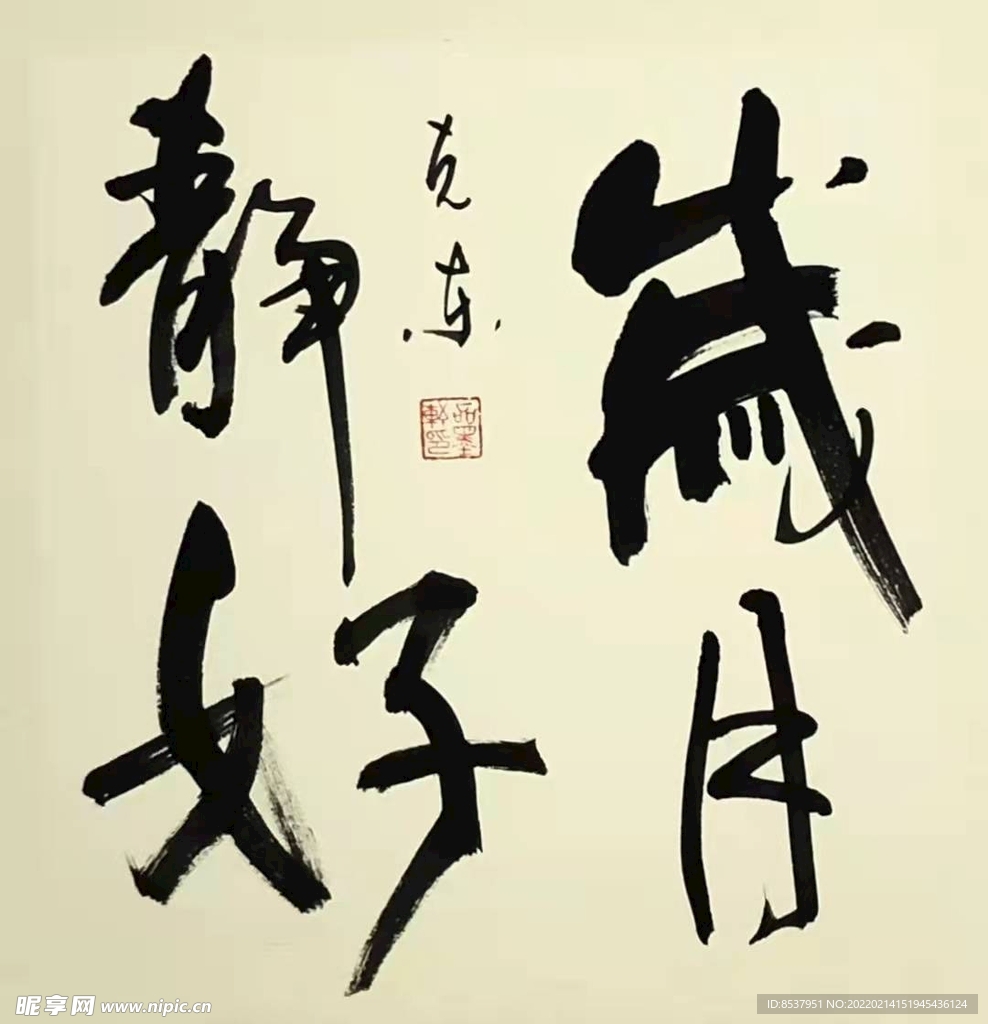 歲月
静好
克东
品墨軒印
昵享网 www.nipic.cn
ID:8537951 NO:20220214151945436124